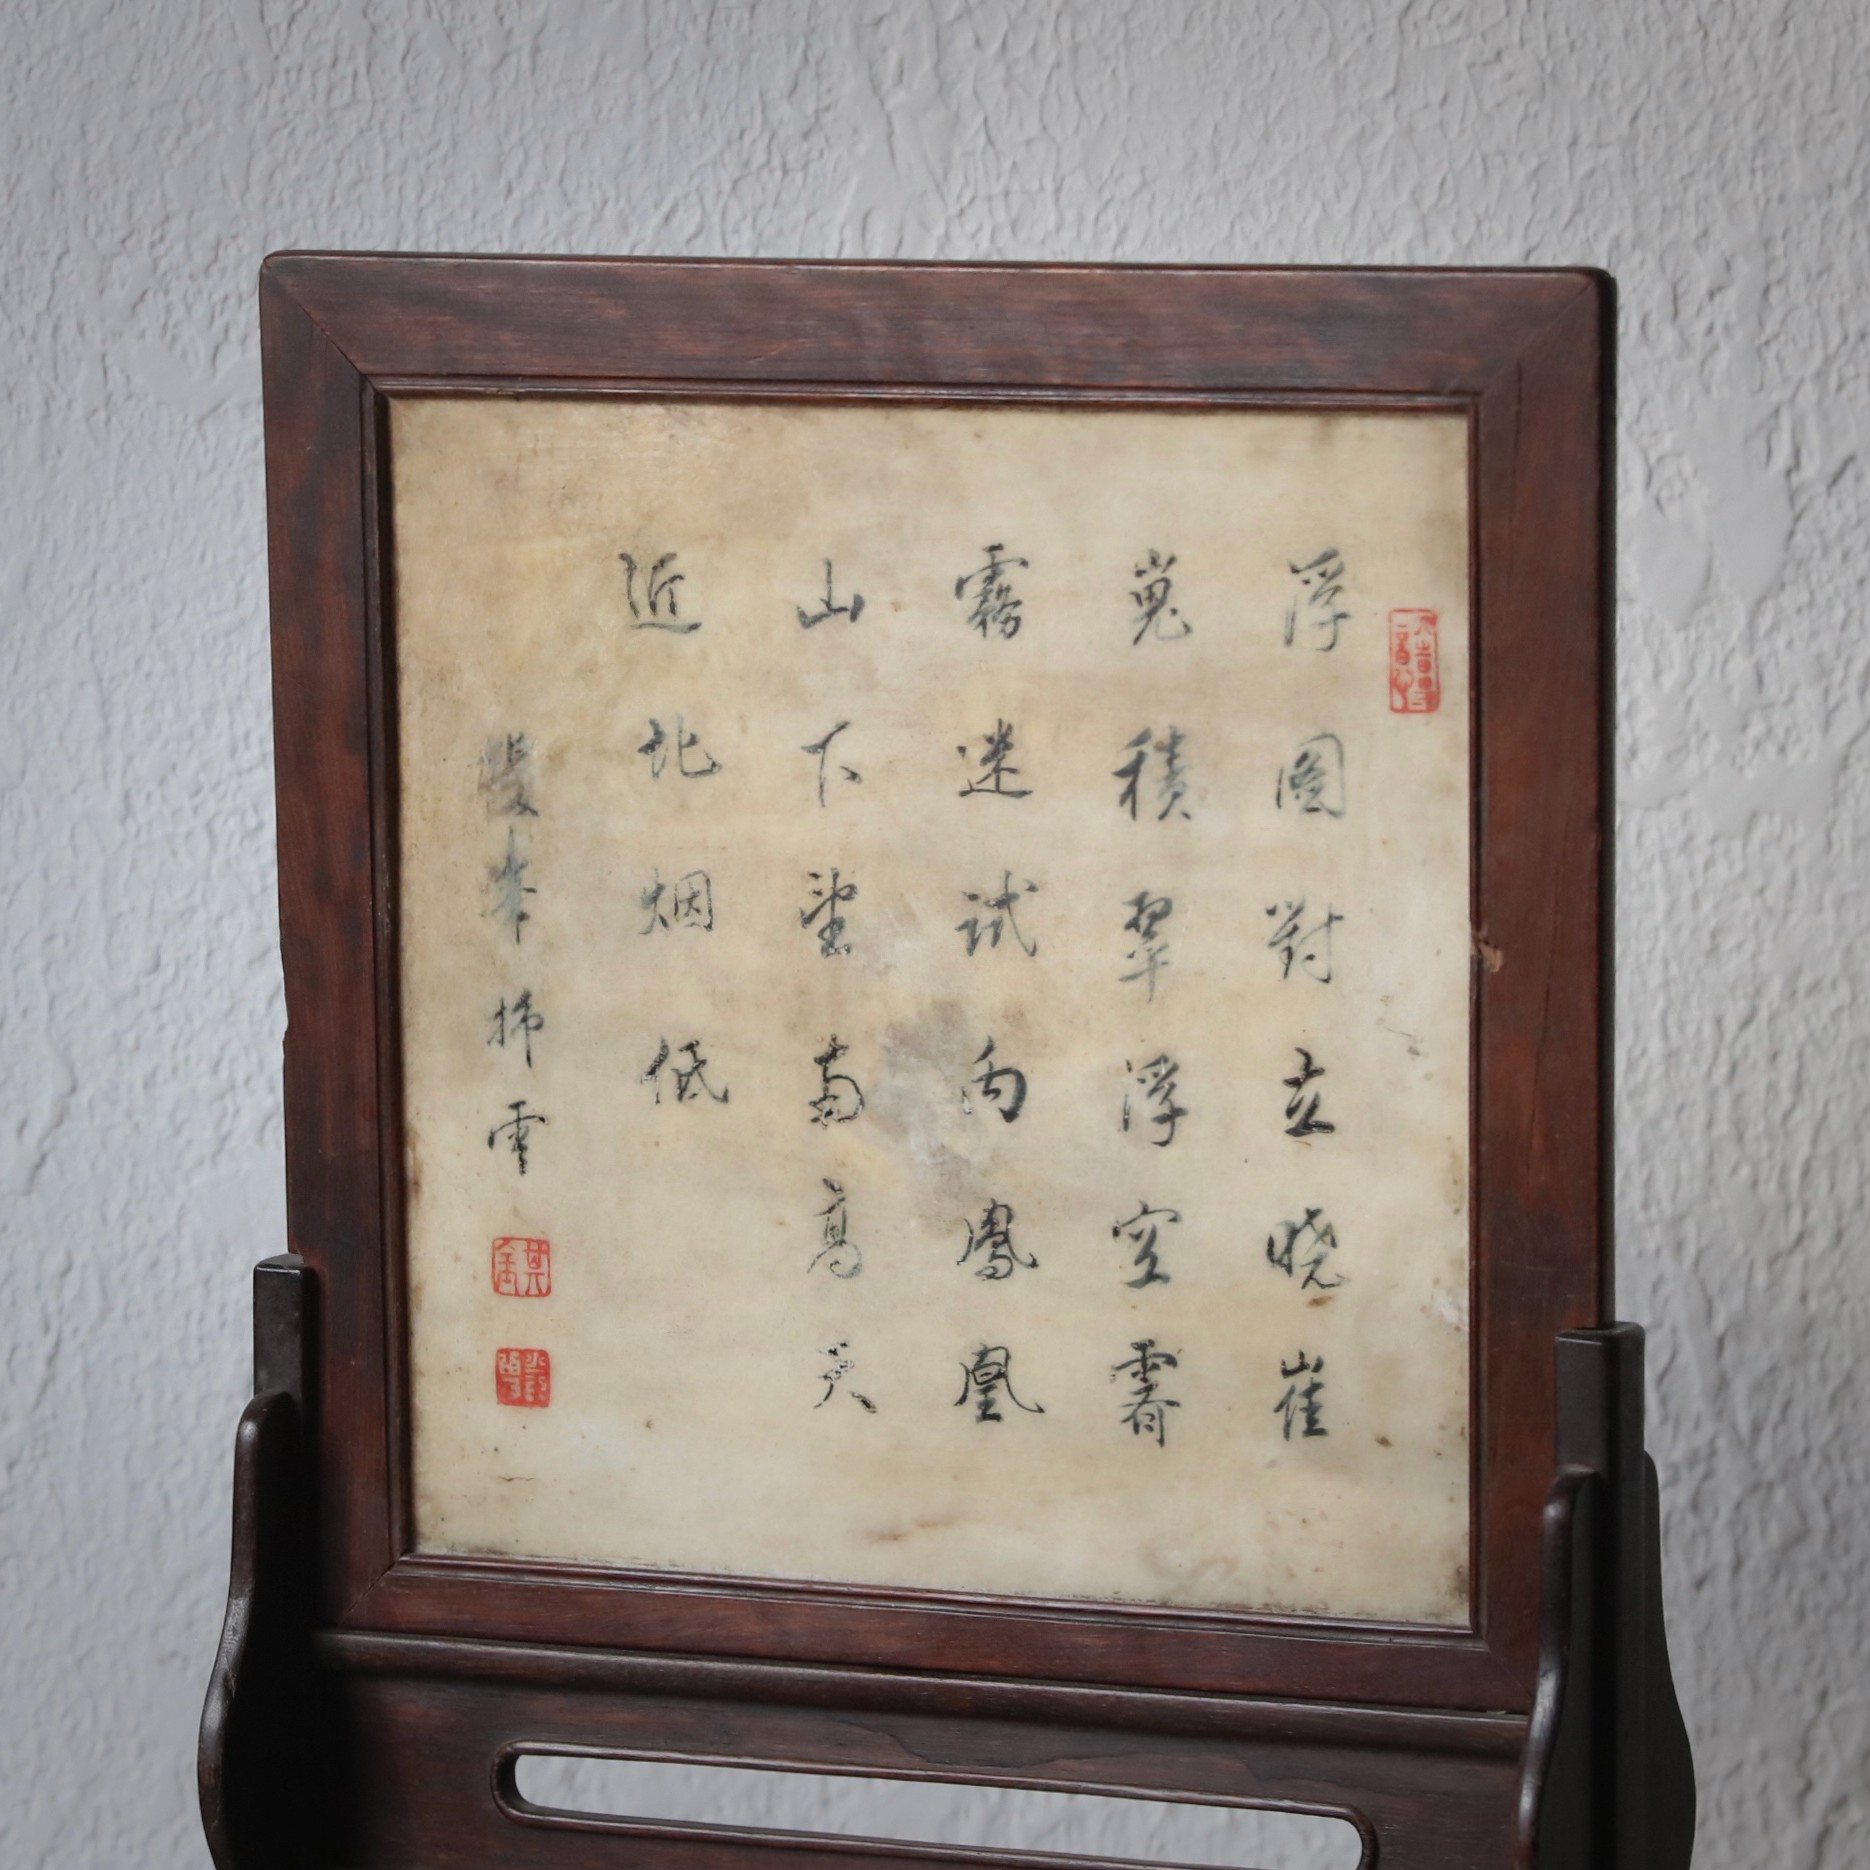 浮圖對立曉崔
嵬積翠浮空霽
霧迷試向鳳凰
山下望南高天
近北烟低
雙峯插雲